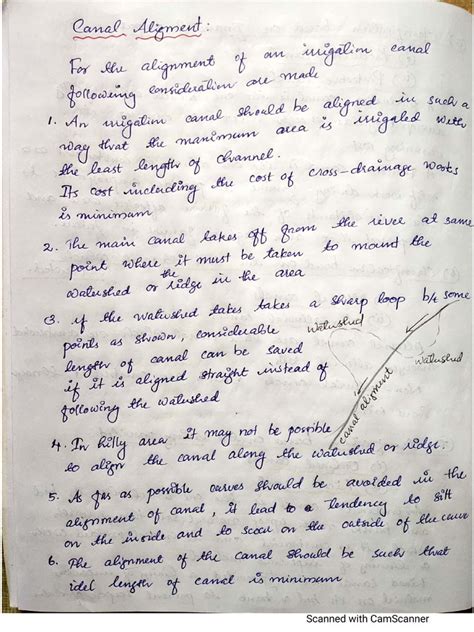 Canal Aligment :
For the alignment of an irrigation canal
following consideration are made
1. An irrigation canal should be aligned in such a
way that the manimum area is irrigated with
the least length of channel.
Its cost including the cost of cross-drainage works
is minimum
2. The main canal takes off from the river at same
point where it must be taken to mound the
watershed or the ridge in the area
3. if the watushed takes takes a sharp loop b/w some
points as shown, considerable
watushed
length of canal can be saved
watushed
if it is aligned straight instead of
following the watushed
canal alignment
4. In hilly area it may not be possible
to align the canal along the watushed or ridge.
5. As far as possible curves should be avoided in the
alignment of canal, it lead to a Tendency to silt
on the inside and to scour on the outside of the curve
6. The alignment of the canal should be such that
idel length of canal is minimum
Scanned with CamScanner